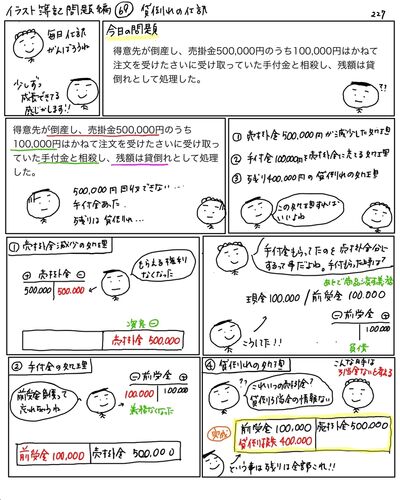 イラスト簿記問題編 69 貸倒れの仕訳
227
毎日仕訳
がんばろうね
少しずつ
成長できてる
感じがします!!
今日の問題
得意先が倒産し、売掛金500,000円のうち100,000円はかねて
注文を受けたさいに受け取っていた手付金と相殺し、残額は貸
倒れとして処理した。
??
得意先が倒産し、売掛金500,000円のうち
100,000円はかねて注文を受けたさいに受け取っ
ていた手付金と相殺し、残額は貸倒れとして処理
した。
500,000円回収できない…
手付金あった…
残りは貸倒れ…
① 売掛金500,000円が減少した処理
② 手付金100,000円を売掛金に充てる処理
③ 残り400,000円の貸倒れの処理
この処理すれば
いいよね
① 売掛金減少の処理
⊕ 売掛金 ⊖
500,000 500,000
もらえる権利
なくなった
資産⊖
売掛金 500,000
手付金もらってたのを売掛金分に
するって事だよね。手付もらった時って?
あとで商品渡す義務
現金100,000 / 前受金 100,000
⊖ 前受金 ⊕
100,000
負債
こうしてた!!
② 手付金の処理
前受金も債って
忘れないでね
⊖ 前受金 ⊕
100,000 100,000
義務なくなった
前受金 100,000 売掛金 500,000
④ 貸倒れの処理
これいつの売掛金?
貸倒引当金の情報ない
こんな時は
引当金ないと考える
完成
前受金 100,000 売掛金 500,000
貸倒損失 400,000
という事は残りは全部これ!!